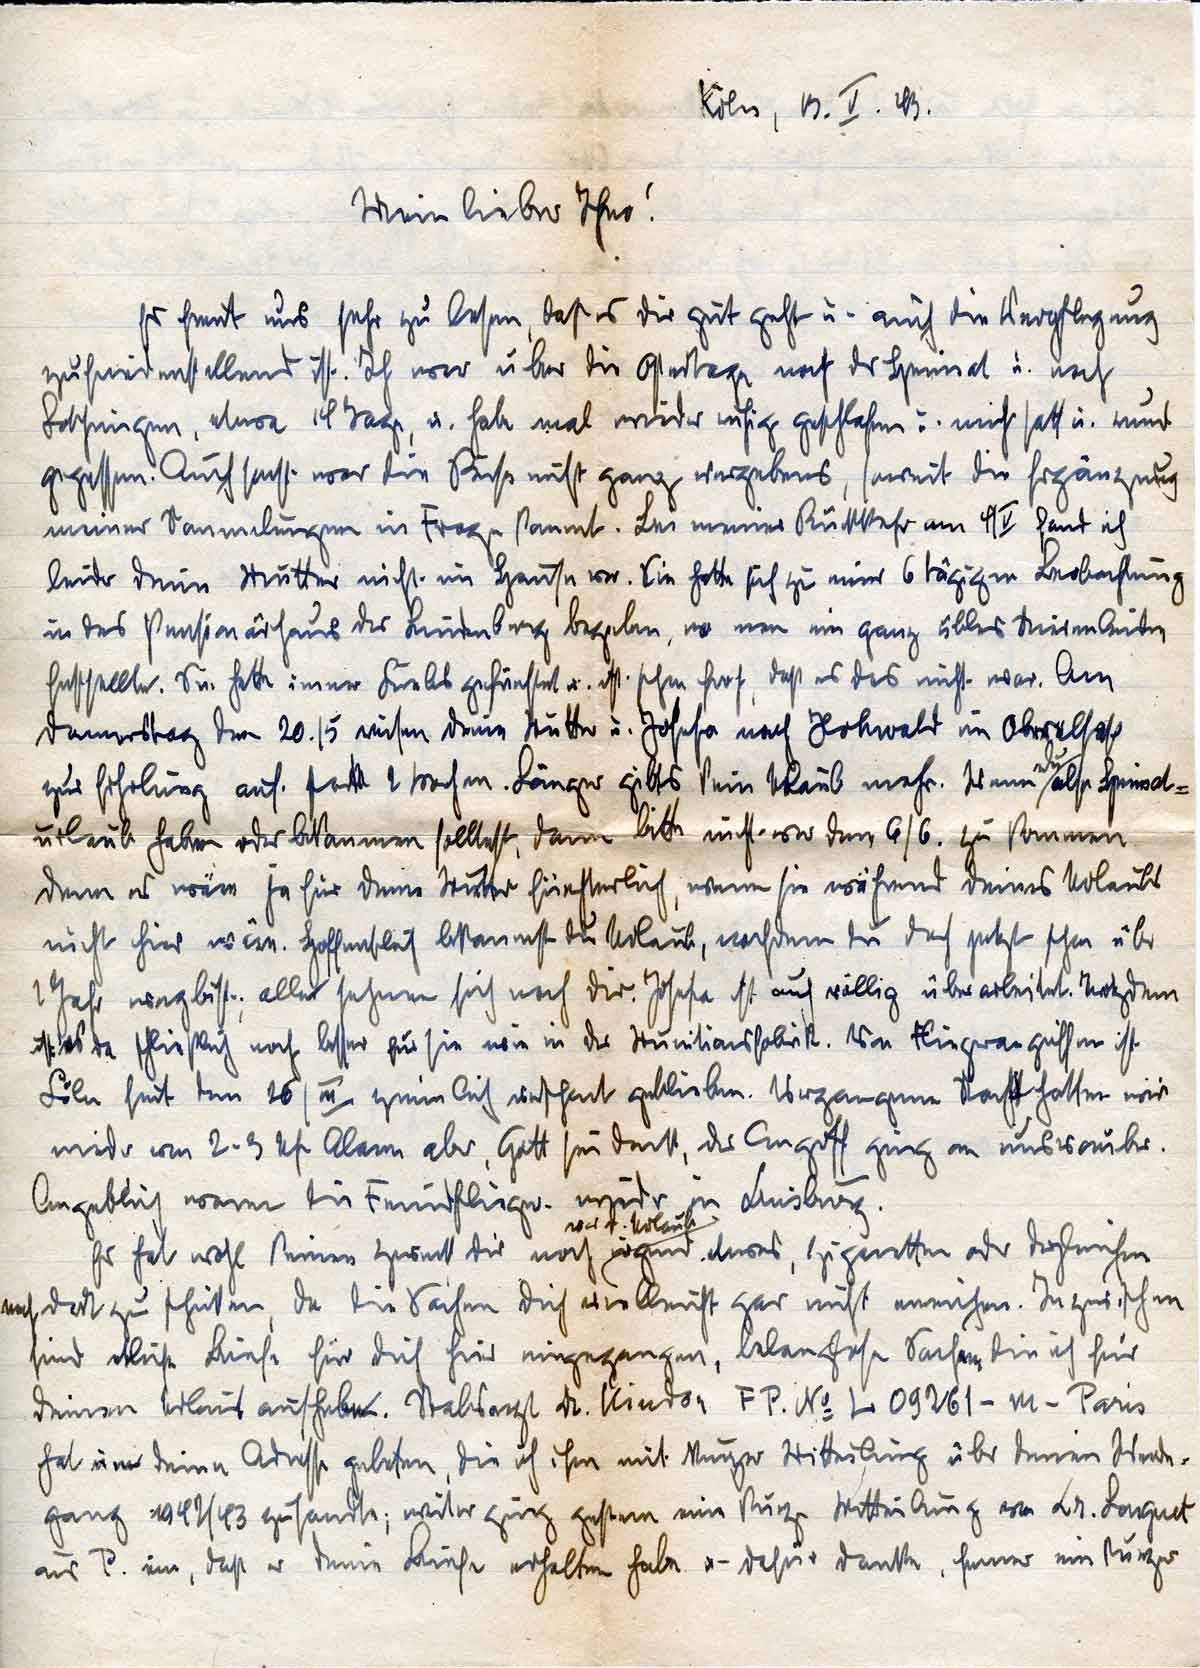 Köln, 13. V. 43.
Mein lieber Theo!
Es freut uns sehr zu lesen, daß es dir gut geht u. auch die Verpflegung
zufriedenstellend ist. Ich war über die Ostertage nach der Heimat u. nach
Lothringen, etwa 14 Tage, u. habe mal wieder ruhig geschlafen u. mich satt u. rund
gegessen. Auch sonst war die Reise nicht ganz vergebens, soweit die Ergänzung
meiner Sammlungen in Frage kommt. Bei meiner Rückkehr am 4/V fand ich
leider deine Mutter nicht im Hause vor. Sie hatte sich zu einer 6 tägigen Beobachtung
in das Pensionärhaus der Lindenburg begeben, wo man ein ganz übles Nierenleiden
feststellte. Sie hatte immer Krebs gefürchtet u. ist schon froh, daß es das nicht war. Am
Donnerstag den 20./5 reisen deine Mutter u. Josefa nach Hohwald im Oberelsaß
zur Erholung auf 2 Wochen. Länger gibts kein Urlaub mehr. Wenn du also Heimat=
urlaub haben oder bekommen solltest, dann bitte nicht vor dem 6/6. zu kommen
denn es wäre ja für deine Mutter fürchterlich, wenn sie während deines Urlaubs
nicht hier wäre. Hoffentlich bekommst du Urlaub, nachdem du doch jetzt schon über
1 Jahr weg bist; alles sehnen sich nach dir. Josefa ist auch völlig überarbeitet. Trotzdem
ist es da schließlich noch besser für sie wie in der Munitionsfabrik. Von Fliegerangriffen ist
Köln seit dem 26/II ziemlich verschont geblieben. Vergangene Nacht hatten wir
wieder von 2-3 Uhr Alarm aber, Gott sei dank, der Angriff ging an uns vorüber.
Angeblich waren die Feindflieger wieder in Duisburg.
Es hat wohl keinen Zweck dir noch vor d. Urlaub irgend etwas, Zigaretten oder dergleichen
nach dort zu schicken, da die Sachen dich vielleicht gar nicht erreichen. Inzwischen
sind etliche Briefe für dich hier eingegangen, belanglose Sachen, die ich für
deinen Urlaub aufhebe. Stabsarzt Dr. F P. No L 09261 - M - Paris
hat um deine Adresse gebeten, die ich ihm mit kurzer Mitteilung über deinen Werde-
gang 1942/43 zusandte; weiter ging gestern eine kurze Mitteilung von Dr.
aus P. ein, daß er deine Briefe erhalten habe u. dafür danke, ferner ein kurzer